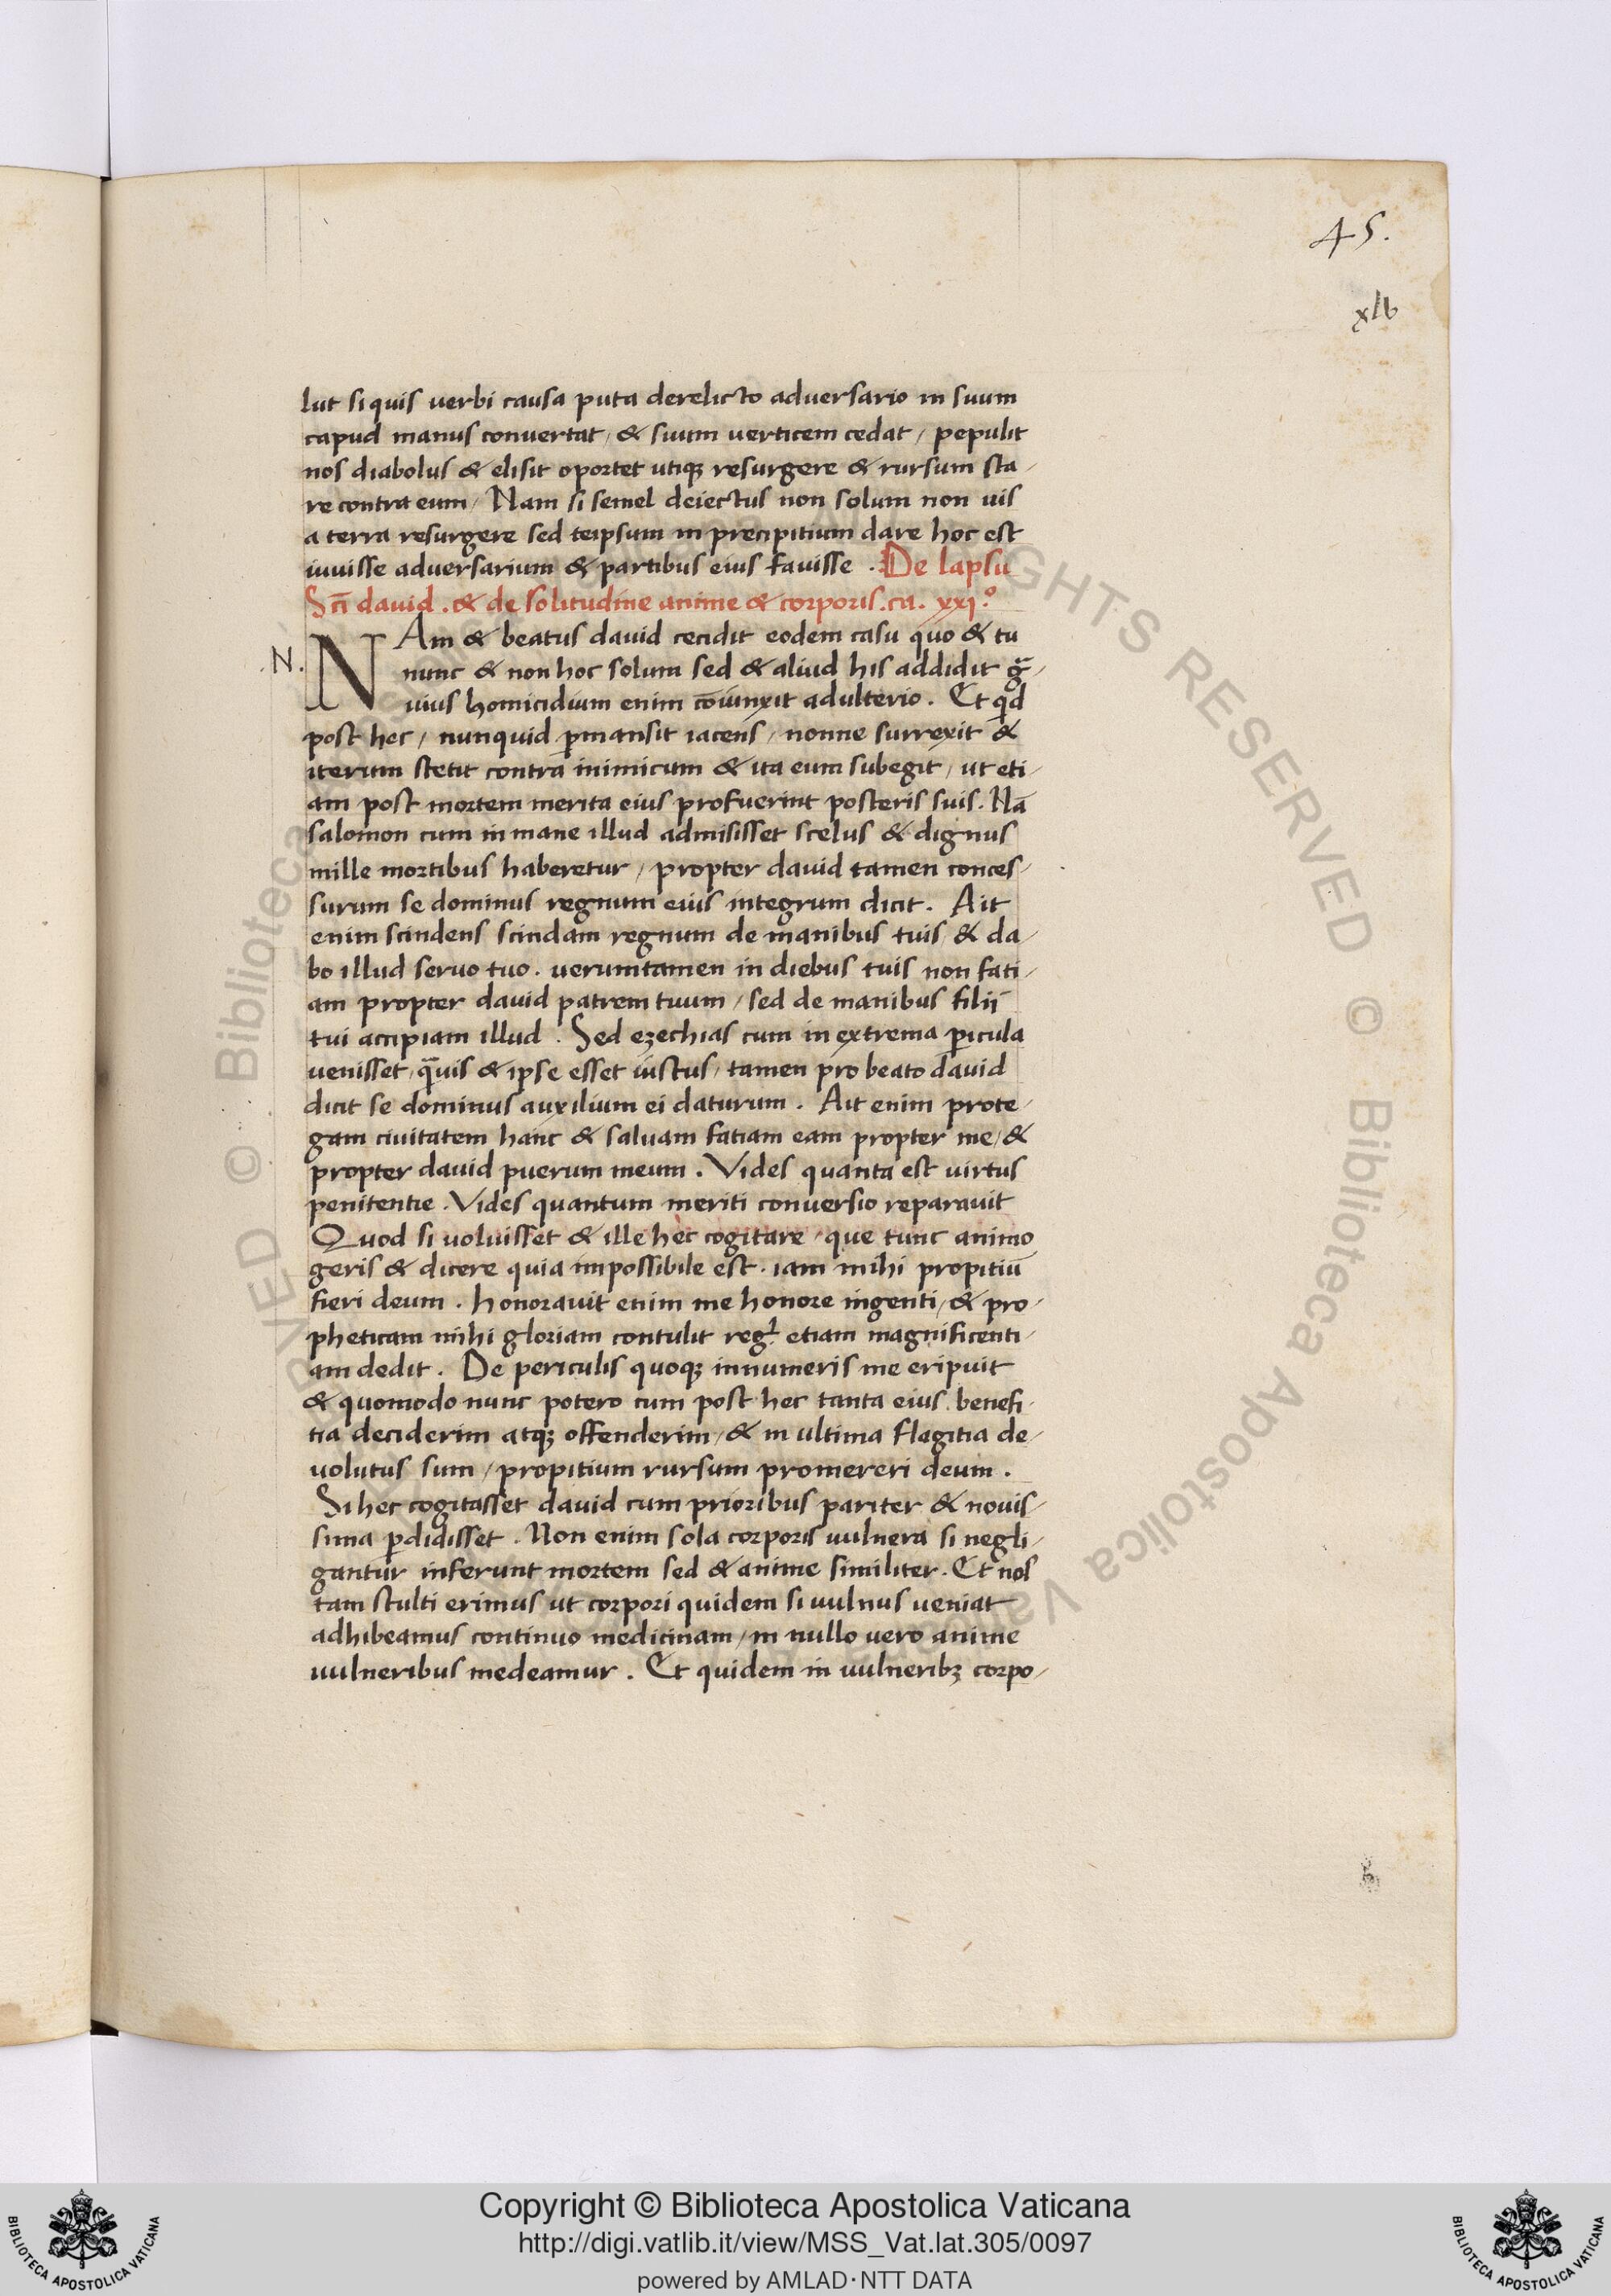 45.
xlv
lut si quis verbi causa puta derelicto adversario in suum
capud manus convertat, & suum verticem cedat, pepulit
nos diabolus & elisit oportet utiqꝫ resurgere & rursum sta-
re contra eum, Nam si semel deiectus non solum non vis
a terra resurgere sed teipsum in precipitium dare hoc est
iuvisse adversarium & partibus eius favisse . De lapsu
Sc̄i david . & de solitudine anime & corporis . ca. xxi.º
N.
NAm & beatus david cecidit eodem casu quo & tu
nunc & non hoc solum sed & aliud his addidit g̃-
vius homicidium enim cōiunxit adulterio. Et qd̄
post hec, nunquid ꝑmansit iacens, nonne surrexit &
iterum stetit contra inimicum & ita eum subegit, ut eti-
am post mortem merita eius profuerint posteris suis. Nā
salomon cum in mane illud admisisset scelus & dignus
mille mortibus haberetur, propter david tamen conces-
surum se dominus regnum eius integrum dicit. Ait
enim scindens scindam regnum de manibus tuis & da-
bo illud servo tuo. verumtamen in diebus tuis non fati-
am propter david patrem tuum, sed de manibus filii
tui accipiam illud. Sed ezechias cum in extrema ꝑicula
venisset, q̃vis & ipse esset iustus, tamen pro beato david
dicit se dominus auxilium ei daturum. Ait enim prote-
gam civitatem hanc & salvam fatiam eam propter me, &
propter david puerum meum. Vides quanta est virtus
penitentie. Vides quantum meriti conversio reparavit
Quod si voluisset & ille hec cogitare, que tunc animo
geris & dicere quia impossibile est. iam mihi propitiū
fieri deum. honoravit enim me honore ingenti, & pro-
pheticam mihi gloriam contulit regꝭ etiam magnificenti-
am dedit. De periculis quoqꝫ innumeris me eripuit
& quomodo nunc potero cum post hec tanta eius benefi-
tia deciderim atqꝫ offenderim, & in ultima flagitia de-
volutus sum, propitium rursum promereri deum.
Si hec cogitasset david cum prioribus pariter & novis-
sima ꝑdidisset. Non enim sola corporis vulnera si negli-
gantur inferunt mortem sed & anime similiter. Et nos
tam stulti erimus ut corpori quidem si vulnus veniat
adhibeamus continuo medicinam, in nullo vero anime
vulneribus medeamur. Et quidem in vulneribꝫ corpo-
Copyright © Biblioteca Apostolica Vaticana
http://digi.vatlib.it/view/MSS_Vat.lat.305/0097
powered by AMLAD·NTT DATA
BIBLIOTECA APOSTOLICA VATICANA
BIBLIOTECA APOSTOLICA VATICANA